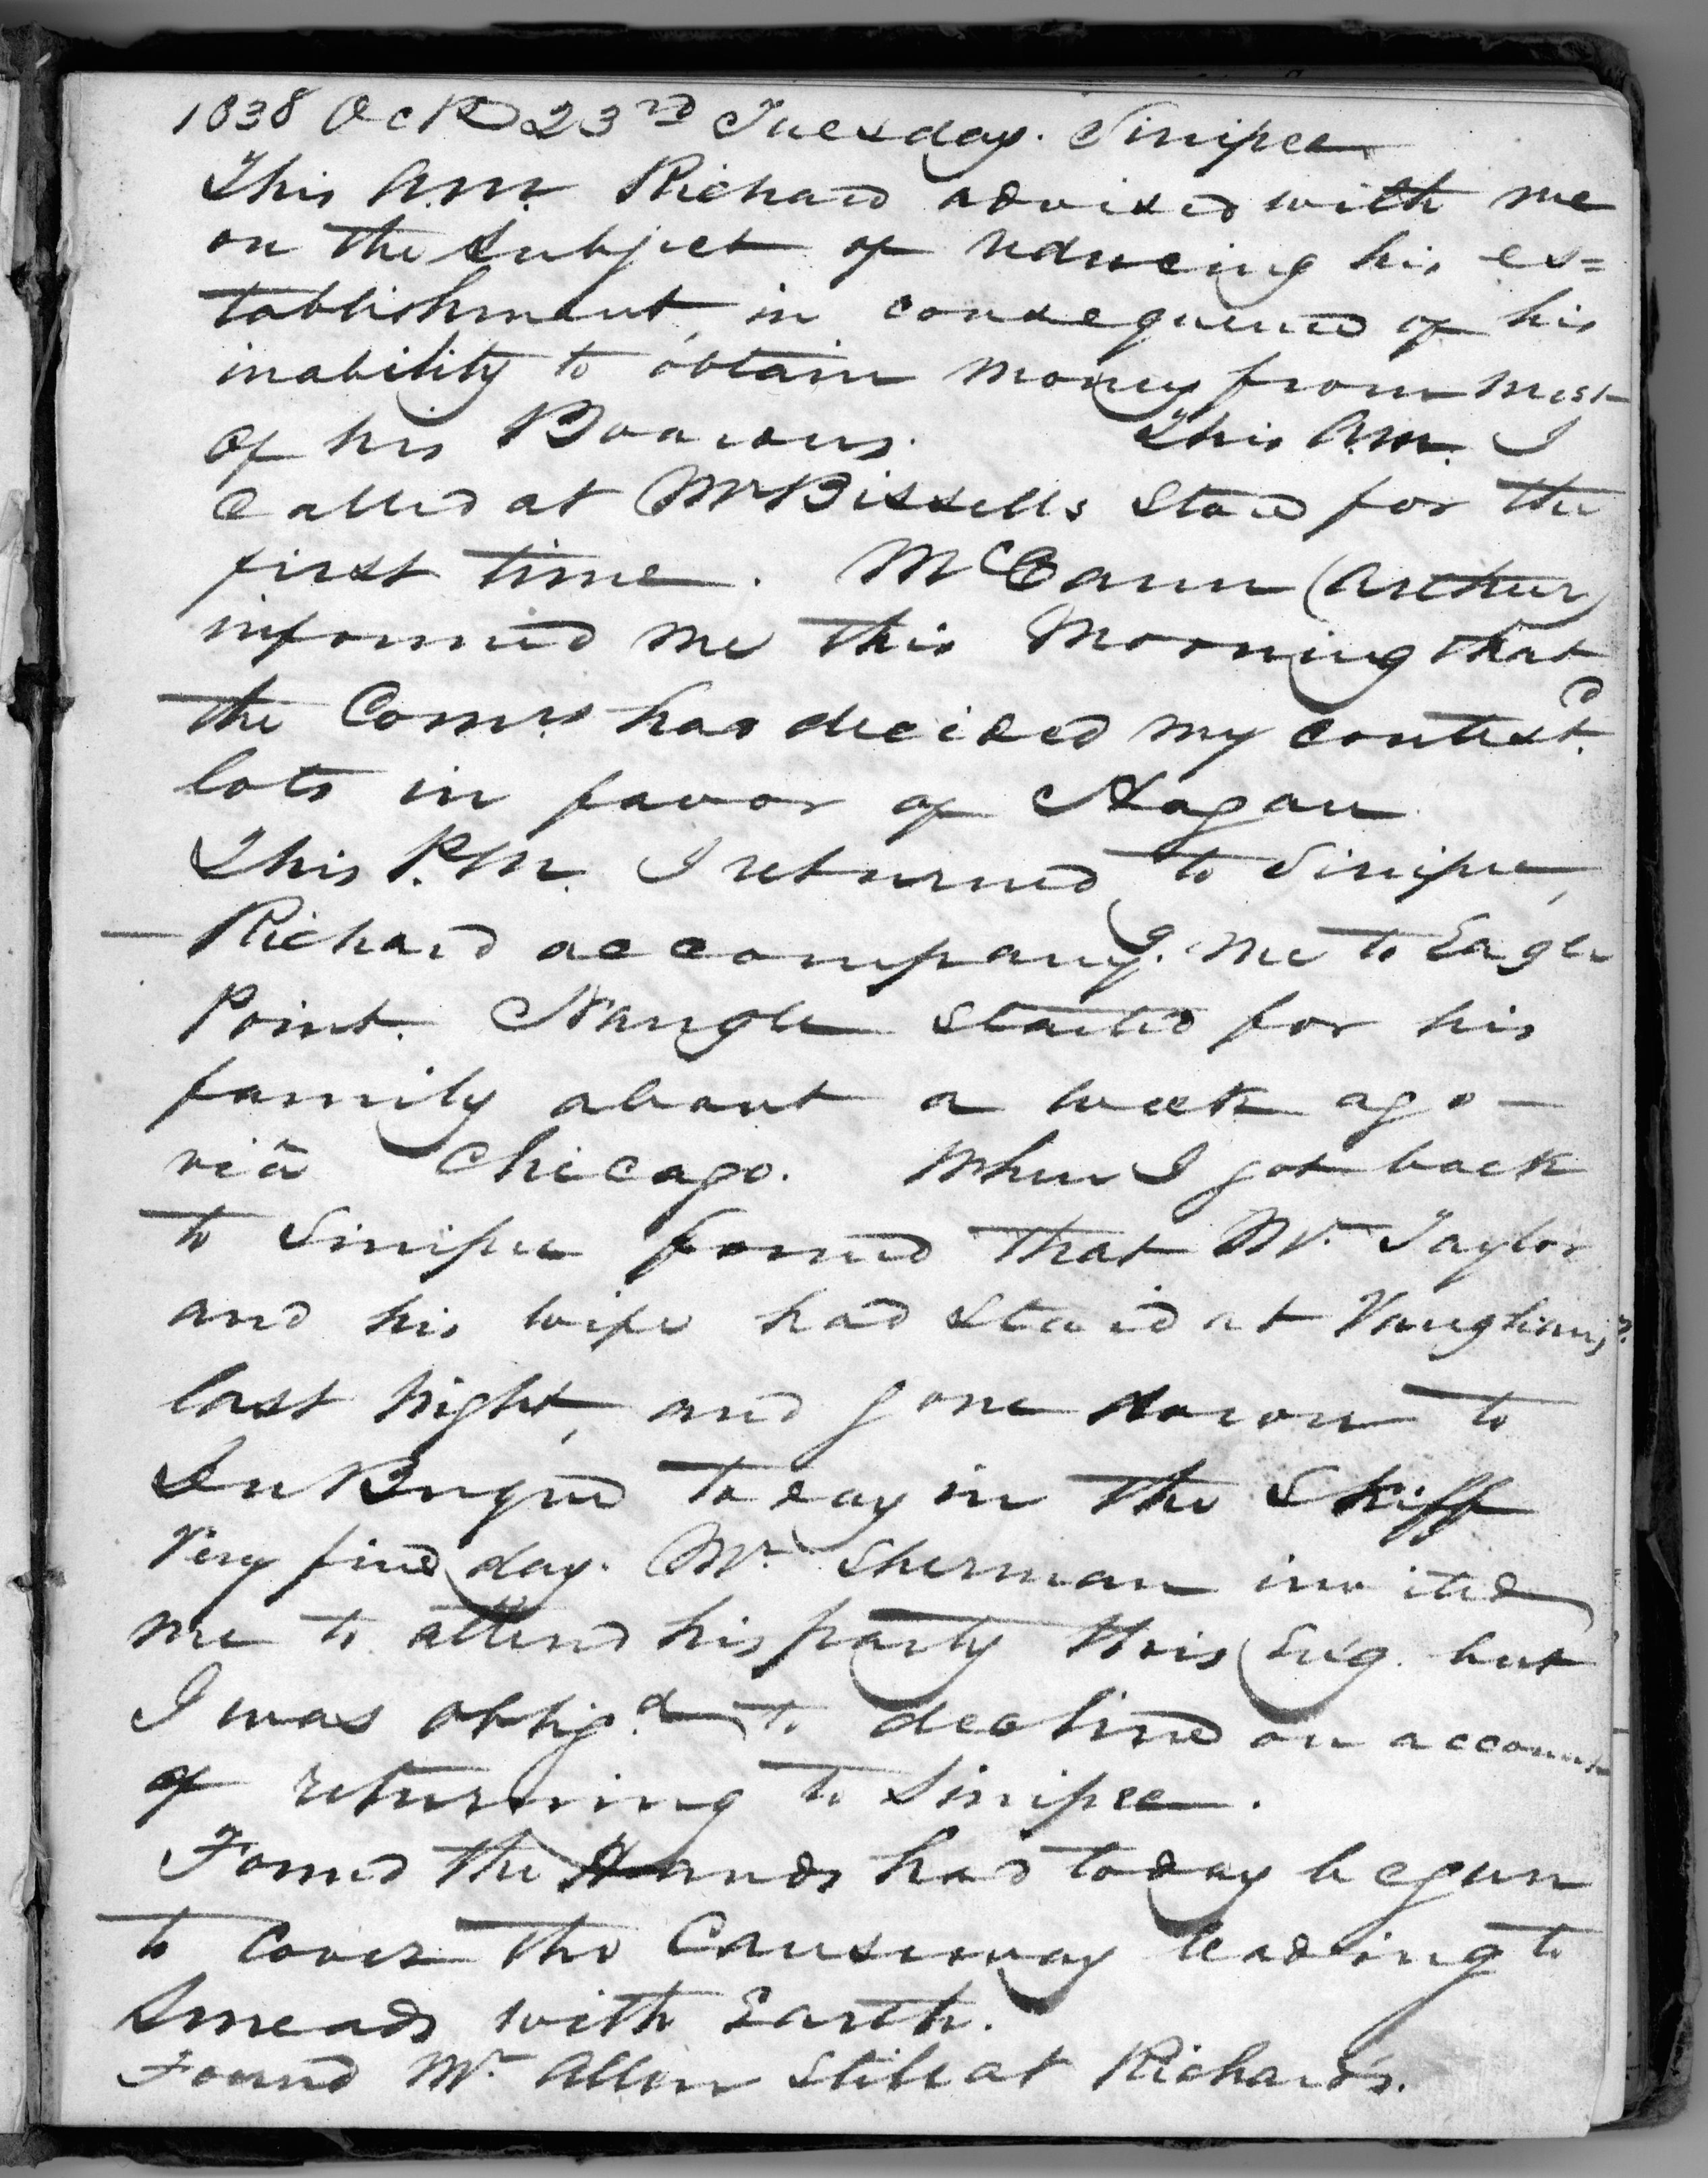 1838 Oct 23rd Tuesday. Sinipee
This A.M. Richard advised with me
on the subject of reducing his es=
tablishment, in consequence of his
inability to obtain money from most
of his Boarders. This A.M. I
called at Mr Bissells Store for the
first time. McCann (Arthur)
informed me this Morning that
the Comrs has decided my contestd
lots in favor of Hagan
This P.M. I returned to Sinipee,
— Richard accompanyg. me to Eagle
Point. Nangle started for his
family about a week ago —
viâ Chicago. When I got back
to Sinipee found that Mr. Taylor
and his wife had staid at Vaughans
last night, and gone down to
DuBuque today in the Skiff
Very fine day. Mr. Sherman invited
me to attend his party this Evg. but
I was obligd to decline on account
of returning to Sinipee.
Found the Hands had today begun
to cover the Causeway leading to
Smeads with Earth.
Found Mr. Allen still at Richards.